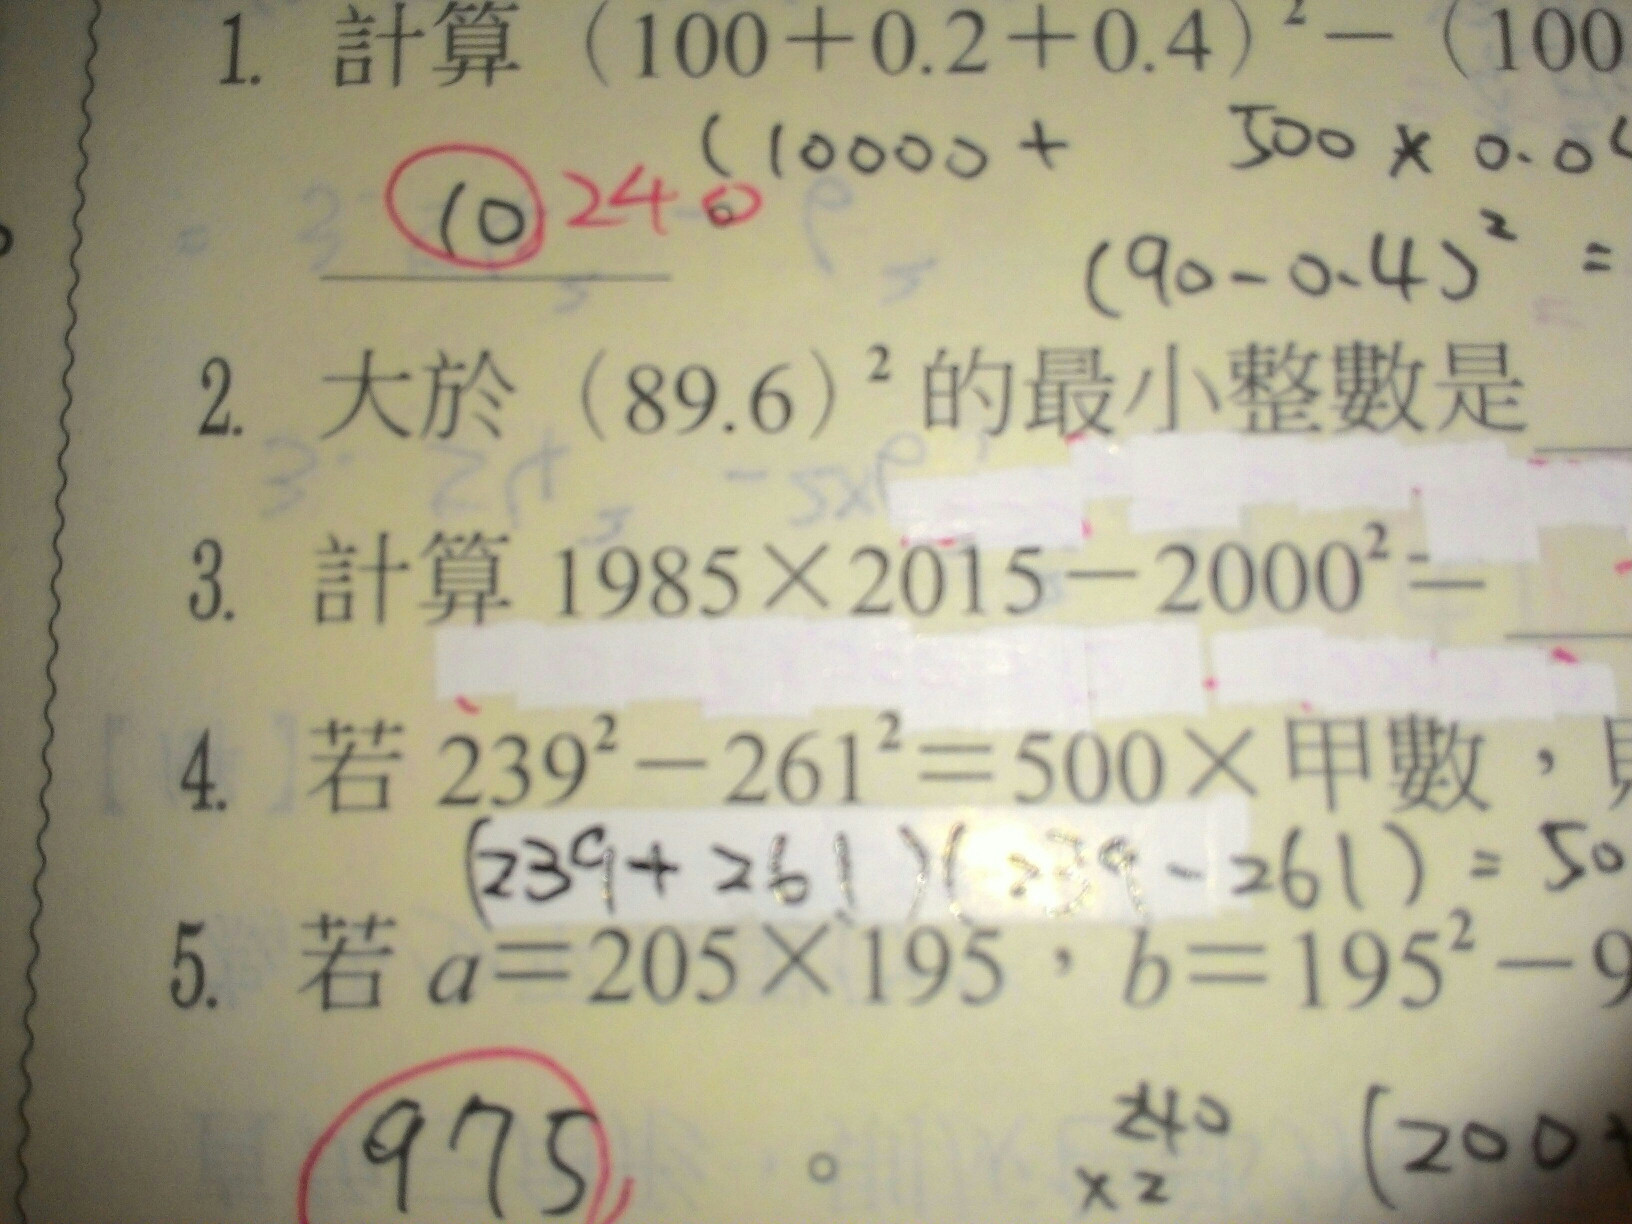 1. 計算（100＋0.2＋0.4）²－（100
(10000+ 500×0.04
10 240
(90-0.4)² =
2. 大於（89.6）²的最小整數是
3. 計算 1985×2015－2000²＝
4. 若 239²－261²＝500×甲數，則
(239+261)(239-261)=50
5. 若 a＝205×195，b＝195²－9
975 。 240 (200+
×2